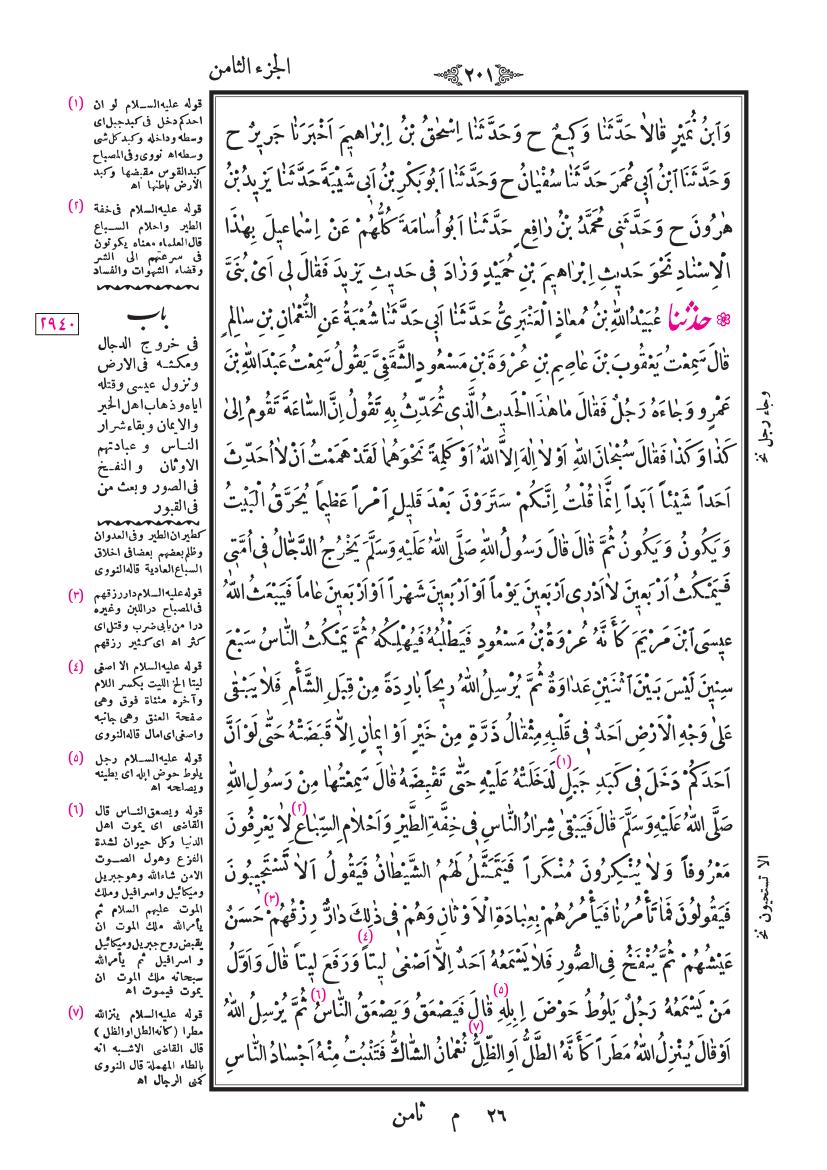 الجزء الثامن
٢٠١
وَابْنُ نُمَيْرٍ قَالَا حَدَّثَنَا وَكِيعٌ ح وَحَدَّثَنَا اِسْحٰقُ بْنُ اِبْرَاهِيمَ اَخْبَرَنَا جَرِيرٌ ح
وَحَدَّثَنَا ابْنُ اَبِي عُمَرَ حَدَّثَنَا سُفْيَانُ ح وَحَدَّثَنَا اَبُو بَكْرِ بْنُ اَبِي شَيْبَةَ حَدَّثَنَا يَزِيدُ بْنُ
هٰرُونَ ح وَحَدَّثَنِي مُحَمَّدُ بْنُ رَافِعٍ حَدَّثَنَا اَبُو اُسَامَةَ كُلُّهُمْ عَنْ اِسْمَاعِيلَ بِهٰذَا
الْاِسْنَادِ نَحْوَ حَدِيثِ اِبْرَاهِيمَ بْنِ حُمَيْدٍ وَزَادَ فِي حَدِيثِ يَزِيدَ فَقَالَ لِي اَيْ بُنَيَّ
حَدَّثَنَا عُبَيْدُ اللهِ بْنُ مُعَاذٍ الْعَنْبَرِيُّ حَدَّثَنَا اَبِي حَدَّثَنَا شُعْبَةُ عَنِ النُّعْمَانِ بْنِ سَالِمٍ
قَالَ سَمِعْتُ يَعْقُوبَ بْنَ عَاصِمِ بْنِ عُرْوَةَ بْنِ مَسْعُودٍ الثَّقَفِيَّ يَقُولُ سَمِعْتُ عَبْدَ اللهِ بْنَ
عَمْرٍو وَجَاءَهُ رَجُلٌ فَقَالَ مَا هٰذَا الْحَدِيثُ الَّذِي تُحَدِّثُ بِهِ تَقُولُ اِنَّ السَّاعَةَ تَقُومُ اِلَى
كَذَا وَكَذَا فَقَالَ سُبْحَانَ اللهِ اَوْ لَا اِلٰهَ اِلَّا اللهُ اَوْ كَلِمَةً نَحْوَهُمَا لَقَدْ هَمَمْتُ اَنْ لَا اُحَدِّثَ
اَحَداً شَيْئاً اَبَداً اِنَّمَا قُلْتُ اِنَّكُمْ سَتَرَوْنَ بَعْدَ قَلِيلٍ اَمْراً عَظِيمًا يُحَرَّقُ الْبَيْتُ
وَيَكُونُ وَيَكُونُ ثُمَّ قَالَ قَالَ رَسُولُ اللهِ صَلَّى اللهُ عَلَيْهِ وَسَلَّمَ يَخْرُجُ الدَّجَّالُ فِي اُمَّتِي
فَيَمْكُثُ اَرْبَعِينَ لَا اَدْرِي اَرْبَعِينَ يَوْماً اَوْ اَرْبَعِينَ شَهْراً اَوْ اَرْبَعِينَ عَاماً فَيَبْعَثُ اللهُ
عِيسَى ابْنَ مَرْيَمَ كَاَنَّهُ عُرْوَةُ بْنُ مَسْعُودٍ فَيَطْلُبُهُ فَيُهْلِكُهُ ثُمَّ يَمْكُثُ النَّاسُ سَبْعَ
سِنِينَ لَيْسَ بَيْنَ اثْنَيْنِ عَدَاوَةٌ ثُمَّ يُرْسِلُ اللهُ رِيحاً بَارِدَةً مِنْ قِبَلِ الشَّأْمِ فَلَا يَبْقَى
عَلَى وَجْهِ الْاَرْضِ اَحَدٌ فِي قَلْبِهِ مِثْقَالُ ذَرَّةٍ مِنْ خَيْرٍ اَوْ اِيمَانٍ اِلَّا قَبَضَتْهُ حَتَّى لَوْ اَنَّ
اَحَدَكُمْ دَخَلَ فِي كَبَدِ جَبَلٍ (١) لَدَخَلَتْهُ عَلَيْهِ حَتَّى تَقْبِضَهُ قَالَ سَمِعْتُهَا مِنْ رَسُولِ اللهِ
صَلَّى اللهُ عَلَيْهِ وَسَلَّمَ قَالَ فَيَبْقَى شِرَارُ النَّاسِ فِي خِفَّةِ الطَّيْرِ وَاَحْلَامِ السِّبَاعِ (٢) لَا يَعْرِفُونَ
مَعْرُوفاً وَلَا يُنْكِرُونَ مُنْكَراً فَيَتَمَثَّلُ لَهُمُ الشَّيْطَانُ فَيَقُولُ اَلَا تَسْتَجِيبُونَ
فَيَقُولُونَ فَمَا تَأْمُرُنَا فَيَأْمُرُهُمْ بِعِبَادَةِ الْاَوْثَانِ وَهُمْ فِي ذٰلِكَ دَارٌّ (٣) رِزْقُهُمْ حَسَنٌ
عَيْشُهُمْ ثُمَّ يُنْفَخُ فِي الصُّورِ فَلَا يَسْمَعُهُ اَحَدٌ اِلَّا اَصْغَى (٤) لِيتاً وَرَفَعَ لِيتاً قَالَ وَاَوَّلُ
مَنْ يَسْمَعُهُ رَجُلٌ يَلُوطُ حَوْضَ اِبِلِهِ (٥) قَالَ فَيَصْعَقُ وَيَصْعَقُ النَّاسُ (٦) ثُمَّ يُرْسِلُ اللهُ
اَوْ قَالَ يُنْزِلُ اللهُ مَطَراً كَاَنَّهُ الطَّلُّ اَوِ الظِّلُّ (٧) نُعْمَانُ الشَّاكُّ فَتَنْبُتُ مِنْهُ اَجْسَادُ النَّاسِ
وجاء رجل نخ
الا تستحيون نخ
(١) قوله عليه السلام لو ان
احدكم دخل فى كبد جبل اى
وسطه وداخله وكبد كل شى
وسطه اه نووى وفى المصباح
كبد القوس مقبضها وكبد
الأرض باطنها اه
(٢) قوله عليه السلام فى خفة
الطير واحلام السباع
قال العلماء معناه يكونون
فى سرعتهم الى الشر
وقضاء الشهوات والفساد
باب
٢٩٤٠
فى خروج الدجال
ومكثه فى الارض
ونزول عيسى وقتله
اياه وذهاب اهل الخير
والايمان وبقاء شرار
الناس وعبادتهم
الاوثان والنفخ
فى الصور وبعث من
فى القبور
كطيران الطير وفى العدوان
وظلم بعضهم بعضا فى اخلاق
السباع العادية قاله النووى
(٣) قوله عليه السلام دار رزقهم
فى المصباح در اللبن وغيره
درا من بابى ضرب وقتل اى
كثر اه اى كثير رزقهم
(٤) قوله عليه السلام الا اصغى
ليتا الخ الليت بكسر اللام
وآخره مثناة فوق وهى
صفحة العنق وهى جانبه
واصغى اى امال قاله النووى
(٥) قوله عليه السلام رجل
يلوط حوض ابله اى يطينه
ويصلحه اه
(٦) قوله ويصعق الناس قال
القاضى اى يموت اهل
الدنيا وكل حيوان لشدة
الفزع وهول الصوت
الا من شاء الله وهو جبريل
وميكائيل واسرافيل وملك
الموت عليهم السلام ثم
يأمر الله ملك الموت ان
يقبض روح جبريل وميكائيل
و اسرافيل ثم يأمر الله
سبحانه ملك الموت ان
يموت فيموت اه
(٧) قوله عليه السلام ينزل الله
مطرا (كانه الطل او الظل)
قال القاضى الاشبه انه
بالطاء المهملة قال النووى
كمنى الرجال اه
٢٦ م ثامن